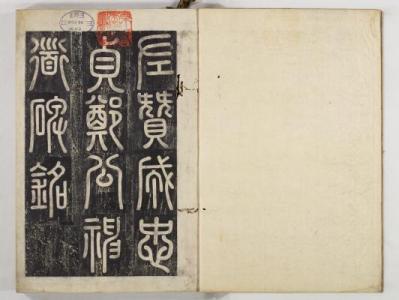 左贊成忠
貞鄭公神
道碑銘